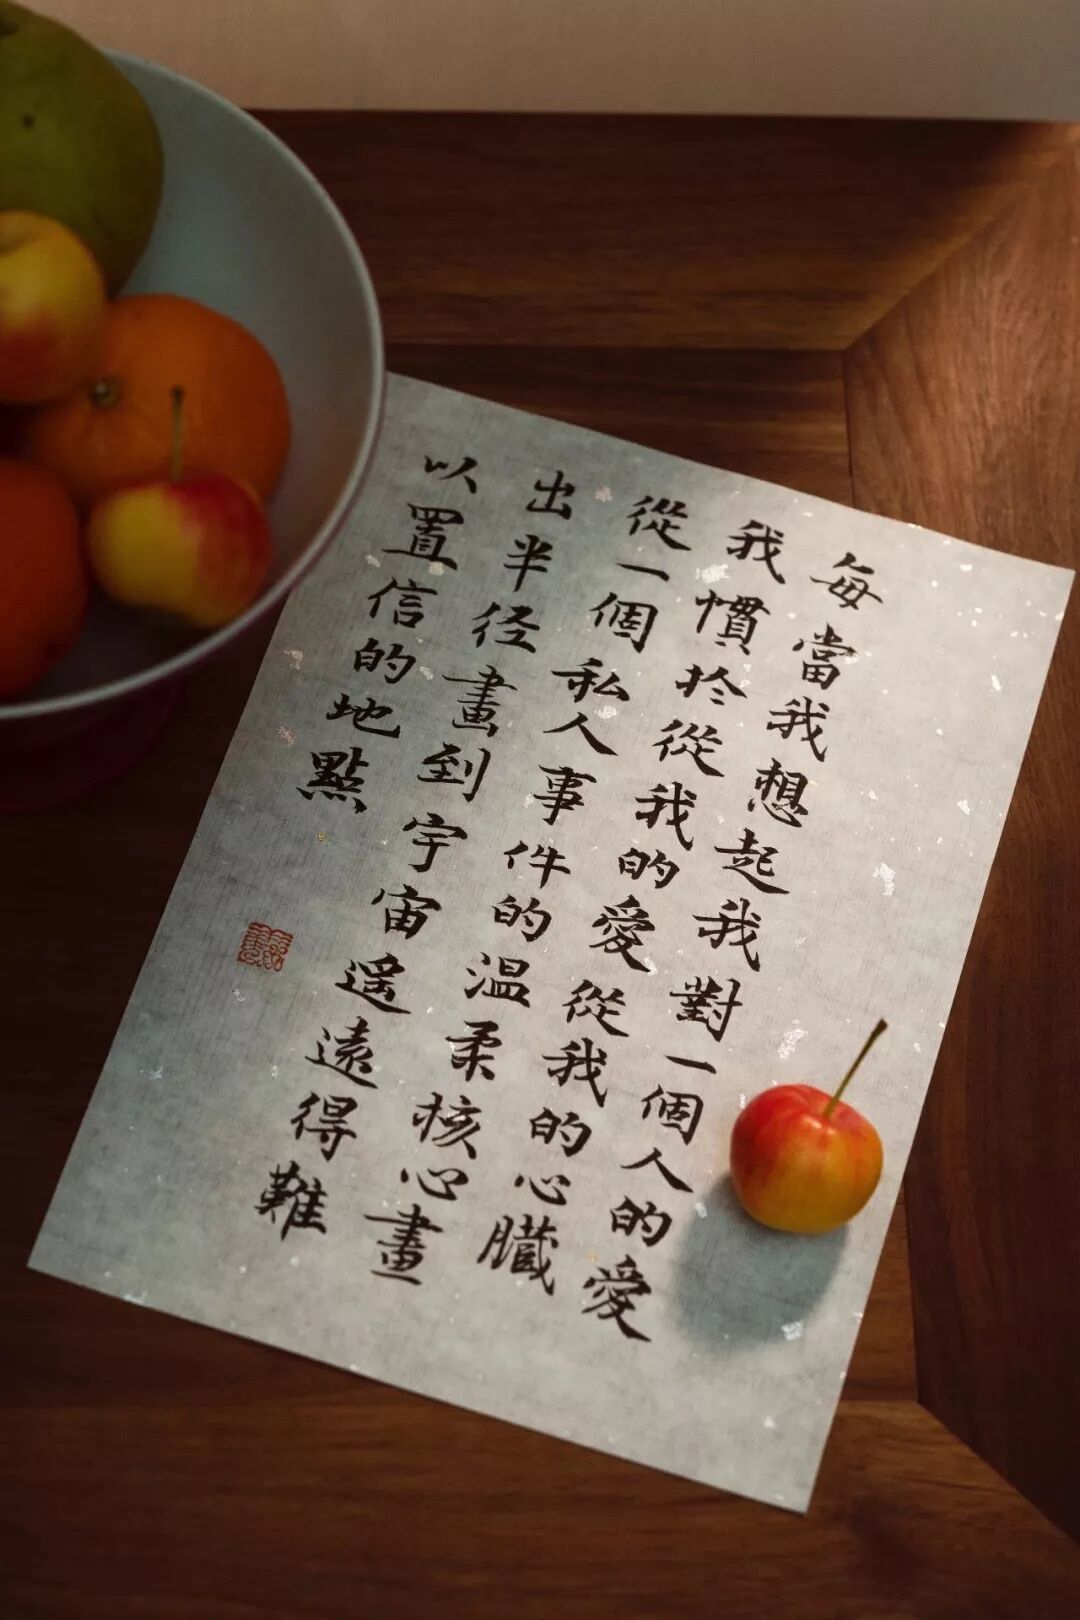 每當我想起我對一個人的愛
我慣於從我的愛從我的心臟
從一個私人事件的温柔核心畫
出半径畫到宇宙遙遠得難
以置信的地點